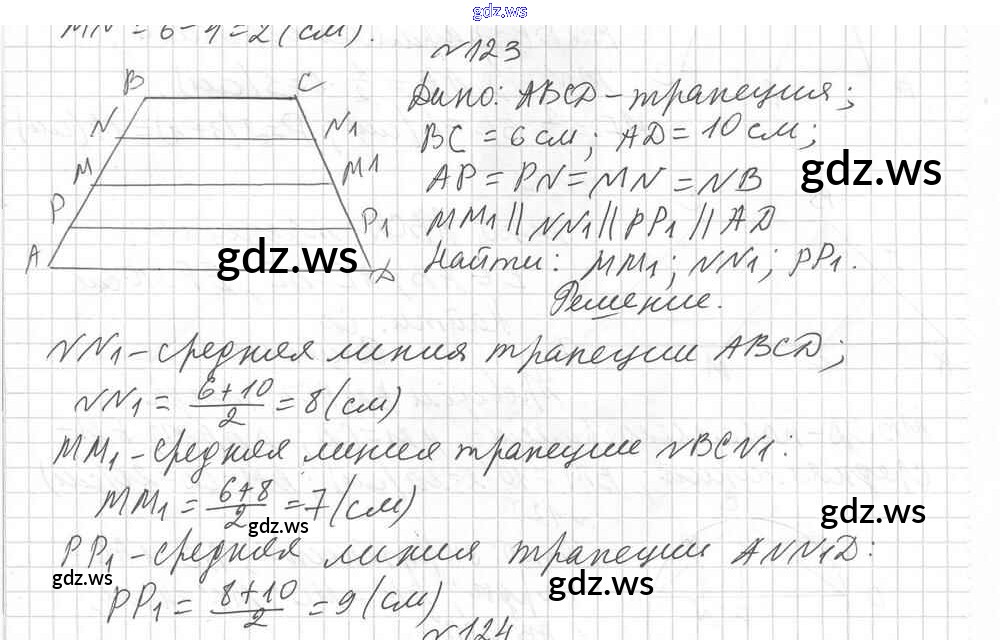 gdz.ws
MN = 6 - 4 = 2 (см).
№123
B C
N N1
M M1
P P1
A D
Дано: ABCD - трапеция;
BC = 6 см; AD = 10 см;
AP = PN = MN = NB
gdz.ws
MM1 || NN1 || PP1 || AD
gdz.ws
Найти: MM1; NN1; PP1.
Решение.
NN1 - средняя линия трапеции ABCD;
NN1 = (6+10)/2 = 8 (см)
MM1 - средняя линия трапеции NBCN1:
MM1 = (6+8)/2 = 7 (см)
gdz.ws
gdz.ws
PP1 - средняя линия трапеции ANN1D:
gdz.ws
gdz.ws
PP1 = (8+10)/2 = 9 (см)
№124